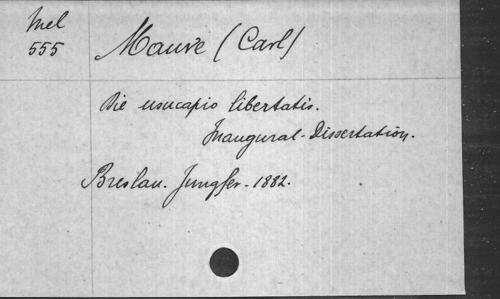 Mel
555
Mauve (Carl)
Die usucapio libertatis.
Inaugural-Dissertation.
Breslau. Jungfer. 1882.